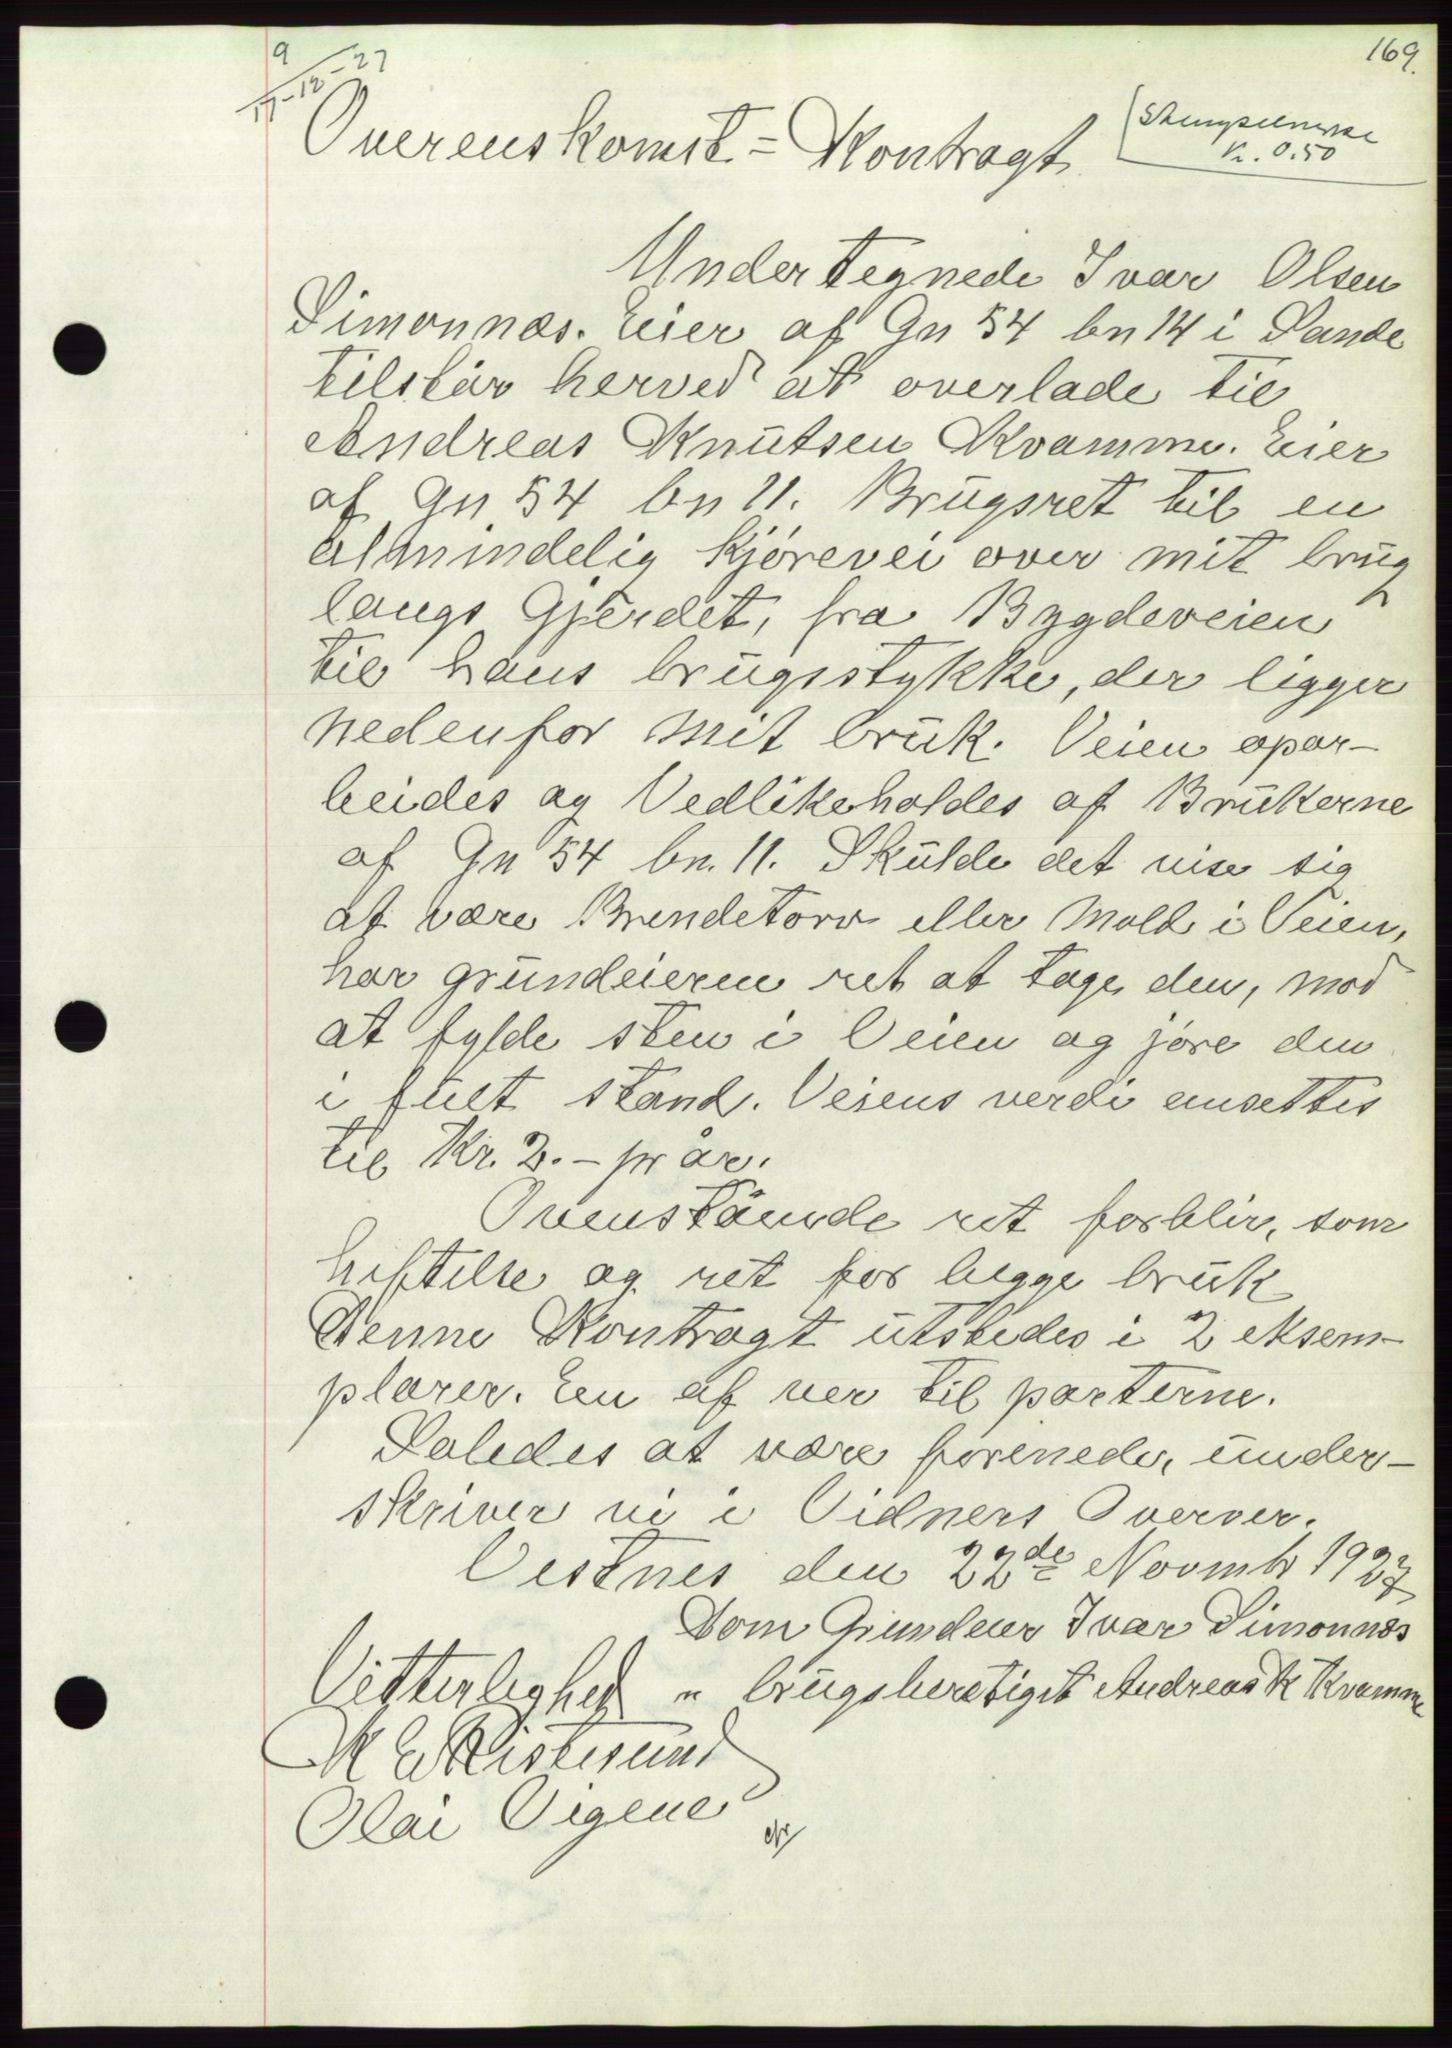 9
17-12-27
169.
Overenskomst = Kontragt
Stempelmerke
Kr. 0.50
Undertegnede Ivar Olsen
Simonnæs. Eier af Gn 54 bn 14 i Sande
tilstår herved at overlade til
Andreas Knutsen Kvamme. Eier
af Gn 54 bn 11. Brugsret til en
almindelig kjørevei over mit brug
langs Gjerdet, fra Bygdeveien
til hans brugsstykke, der ligger
nedenfor mit bruk. Veien opar-
beides og Vedlikeholdes af Brukerne
af Gn 54 bn. 11. Skulde det vise sig
at være Brendetorv eller Mold i Veien,
har grundeieren ret at tage den, mod
at fylde sten i Veien og jøre den
i fult stand. Veiens verdi ansettes
til Kr. 2.- pr år.
Ovenstående ret forblir, som
heftelse og ret for begge bruk
Denne Kontragt utstedes i 2 eksem-
plarer. En af ver til parterne.
Saledes at være forenede, under-
skriver vi i Vidners Overver.
Vestnes den 22de Novmb 1927
Som Grundeier Ivar Simonnæs
Vitterlighed " brugsberetiget Andreas K Kvamme
K E Ristesund
Olai Vigene